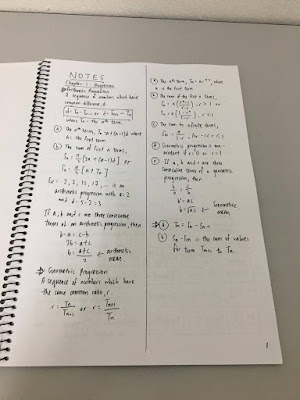 NOTES
Chapter 1 Progression
Arithmetic Progression
A sequence of numbers which have
common difference, d.
d = Tn - Tn-1 or d = Tn+1 - Tn
where Tn = the nth term
a) The nth term, Tn = a + (n-1)d where
a is the first term
b) The sum of the first n terms,
Sn = n/2 [2a + (n-1)d] or
Sn = n/2 [a + Tn]
Ex: 2, 5, 8, 11, ... is an
arithmetic progression with a = 2
and d = 5 - 2 = 3
If a, b and c are three consecutive
terms of an arithmetic progression, then
b - a = c - b
2b = a + c
b = a+c/2 → arithmetic
mean
Geometric Progression
A sequence of numbers which have
the same common ratio, r.
r = Tn/Tn-1 or r = Tn+1/Tn
a) The nth term, Tn = ar^n-1, where
a is the first term
b) The sum of the first n terms,
Sn = a(r^n-1)/r-1, r > 1 or
Sn = a(1-r^n)/1-r, r < 1
c) The sum to infinite terms,
S∞ = a/1-r, for -1 < r < 1
Geometric progression is
if r = 0 or r = 1
If a, b and c are three
consecutive terms of a geometric
progression, then
b/a = c/b
b² = ac
b = √ac → Geometric
mean
Tn = Sn - Sn-1
is the sum of values
for term to Tn
1